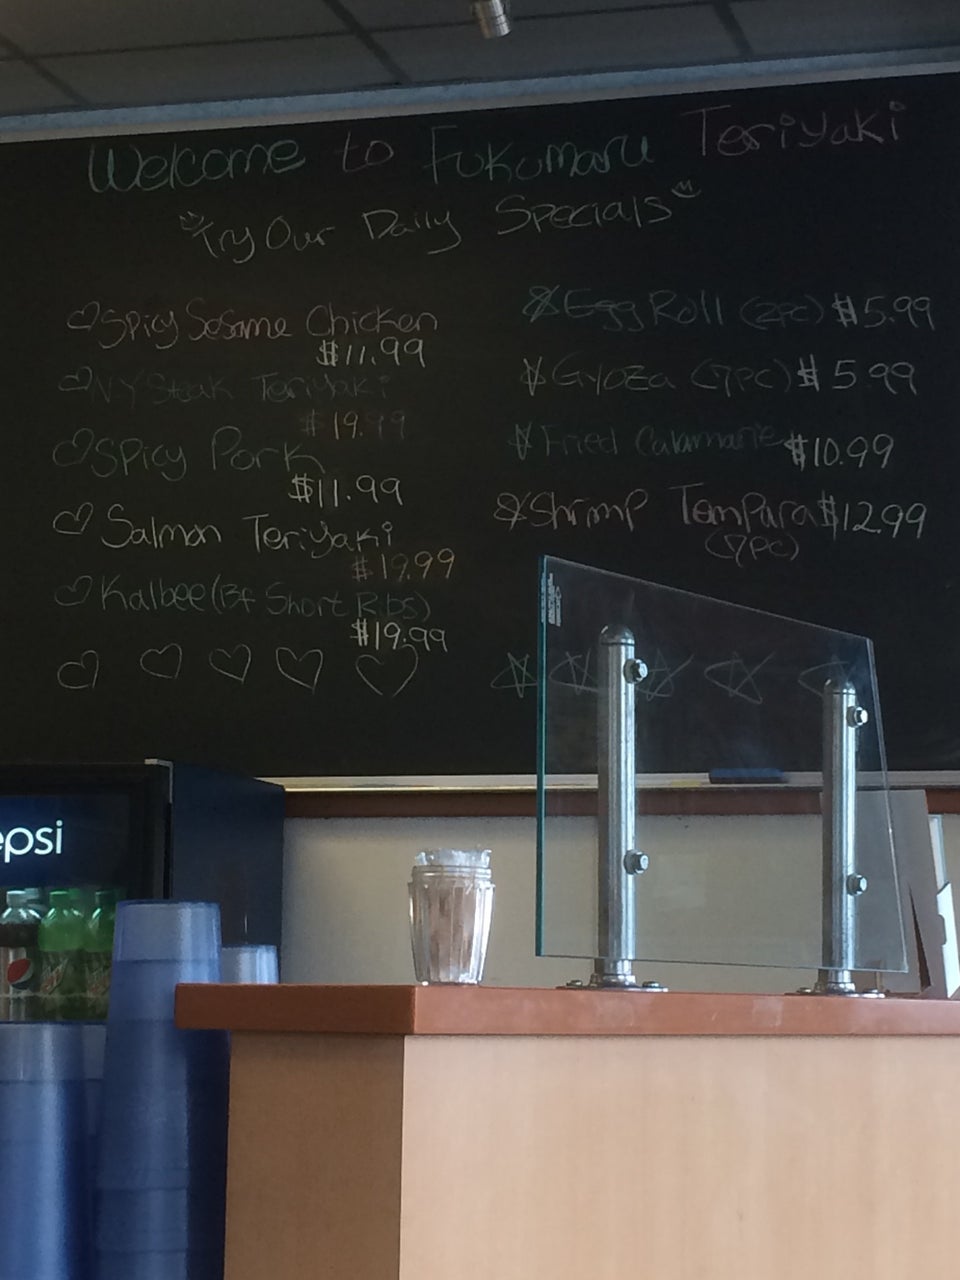 Welcome to Fukumaru Teriyaki
Try Our Daily Specials
Spicy Sesame Chicken
$11.99
NY Steak Teriyaki
$19.99
Spicy Pork
$11.99
Salmon Teriyaki
$19.99
Kalbee (Bf Short Ribs)
$19.99
Egg Roll (2pc) $5.99
Gyoza (7pc) $5.99
Fried Calamarie $10.99
Shrimp Tempura $12.99
(7pc)
epsi